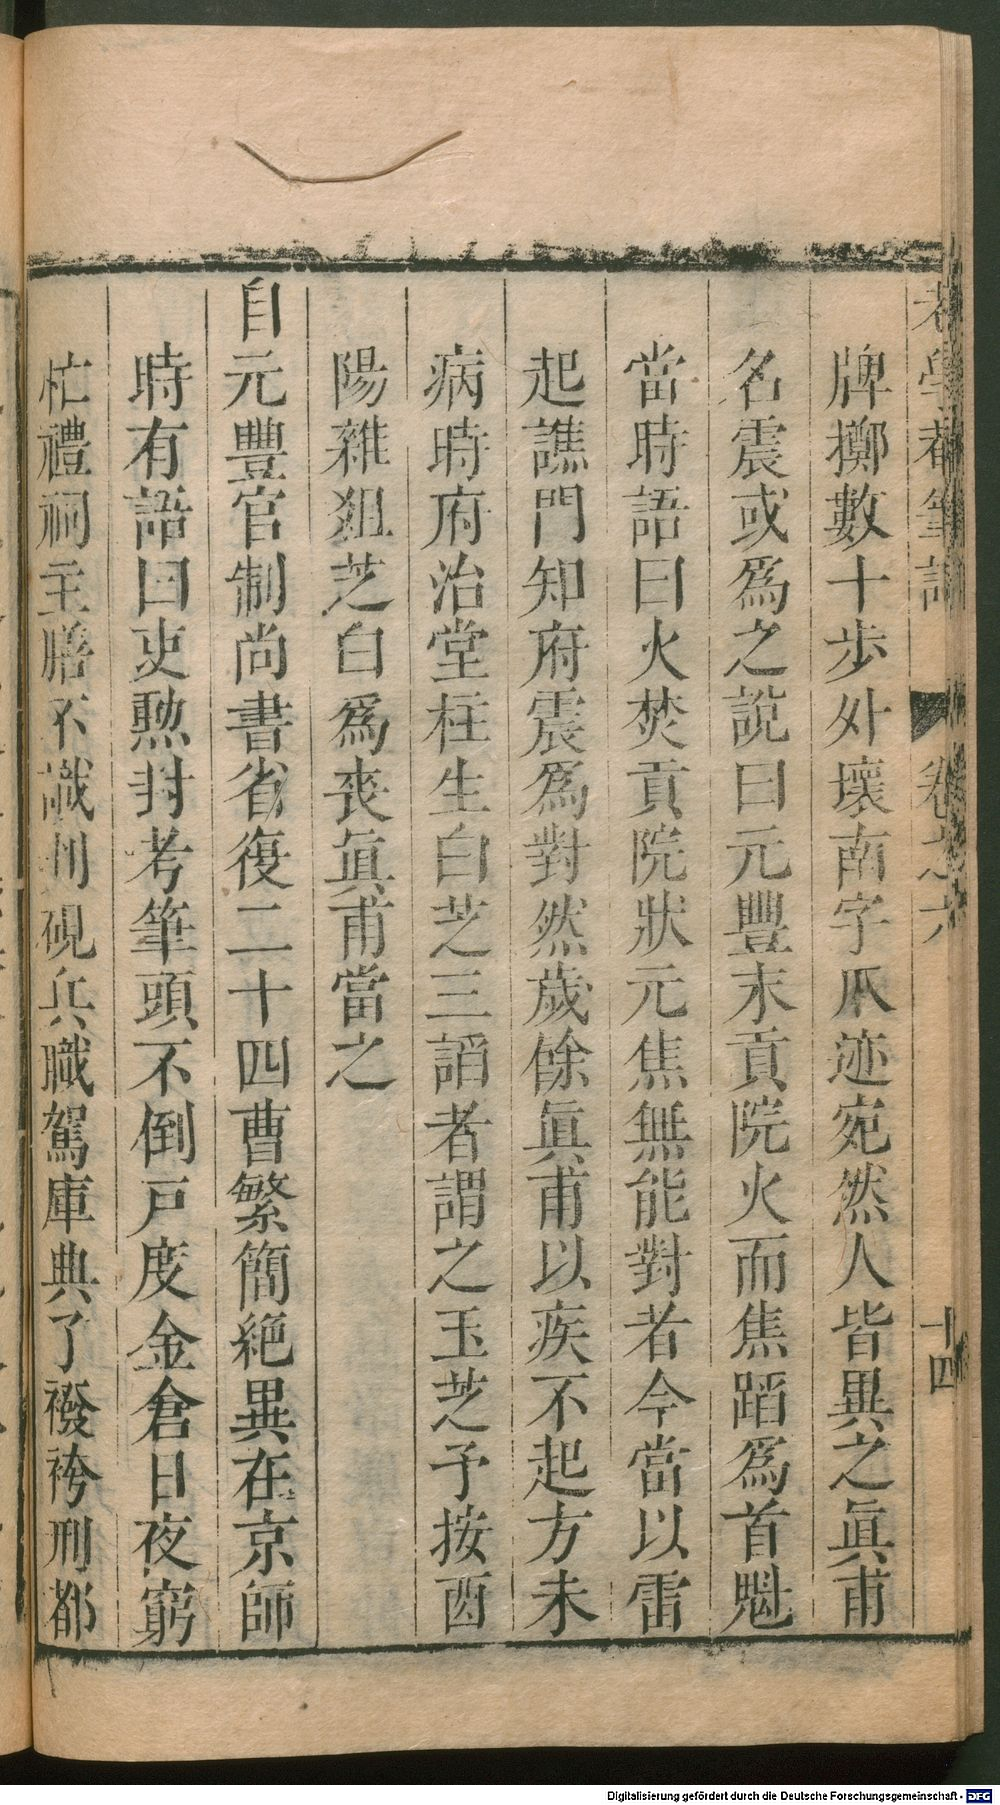 老學菴筆記 卷之六 十四
牌擲數十歩外壞南字爪迹宛然人皆異之眞甫
名震或爲之說曰元豐末貢院火而焦蹈爲首魁
當時語曰火焚貢院狀元焦無能對者今當以雷
起譙門知府震爲對然歲餘眞甫以疾不起方未
病時府治堂柱生白芝三謟者謂之玉芝予按酉
陽雜俎芝白爲喪眞甫當之
自元豐官制尚書省復二十四曹繁簡絶異在京師
時有語曰吏勲封考筆頭不倒戸度金倉日夜窮
忙禮祠主膳不識判硯兵職駕庫典了襏袴刑都
Digitalisierung gefördert durch die Deutsche Forschungsgemeinschaft - DFG